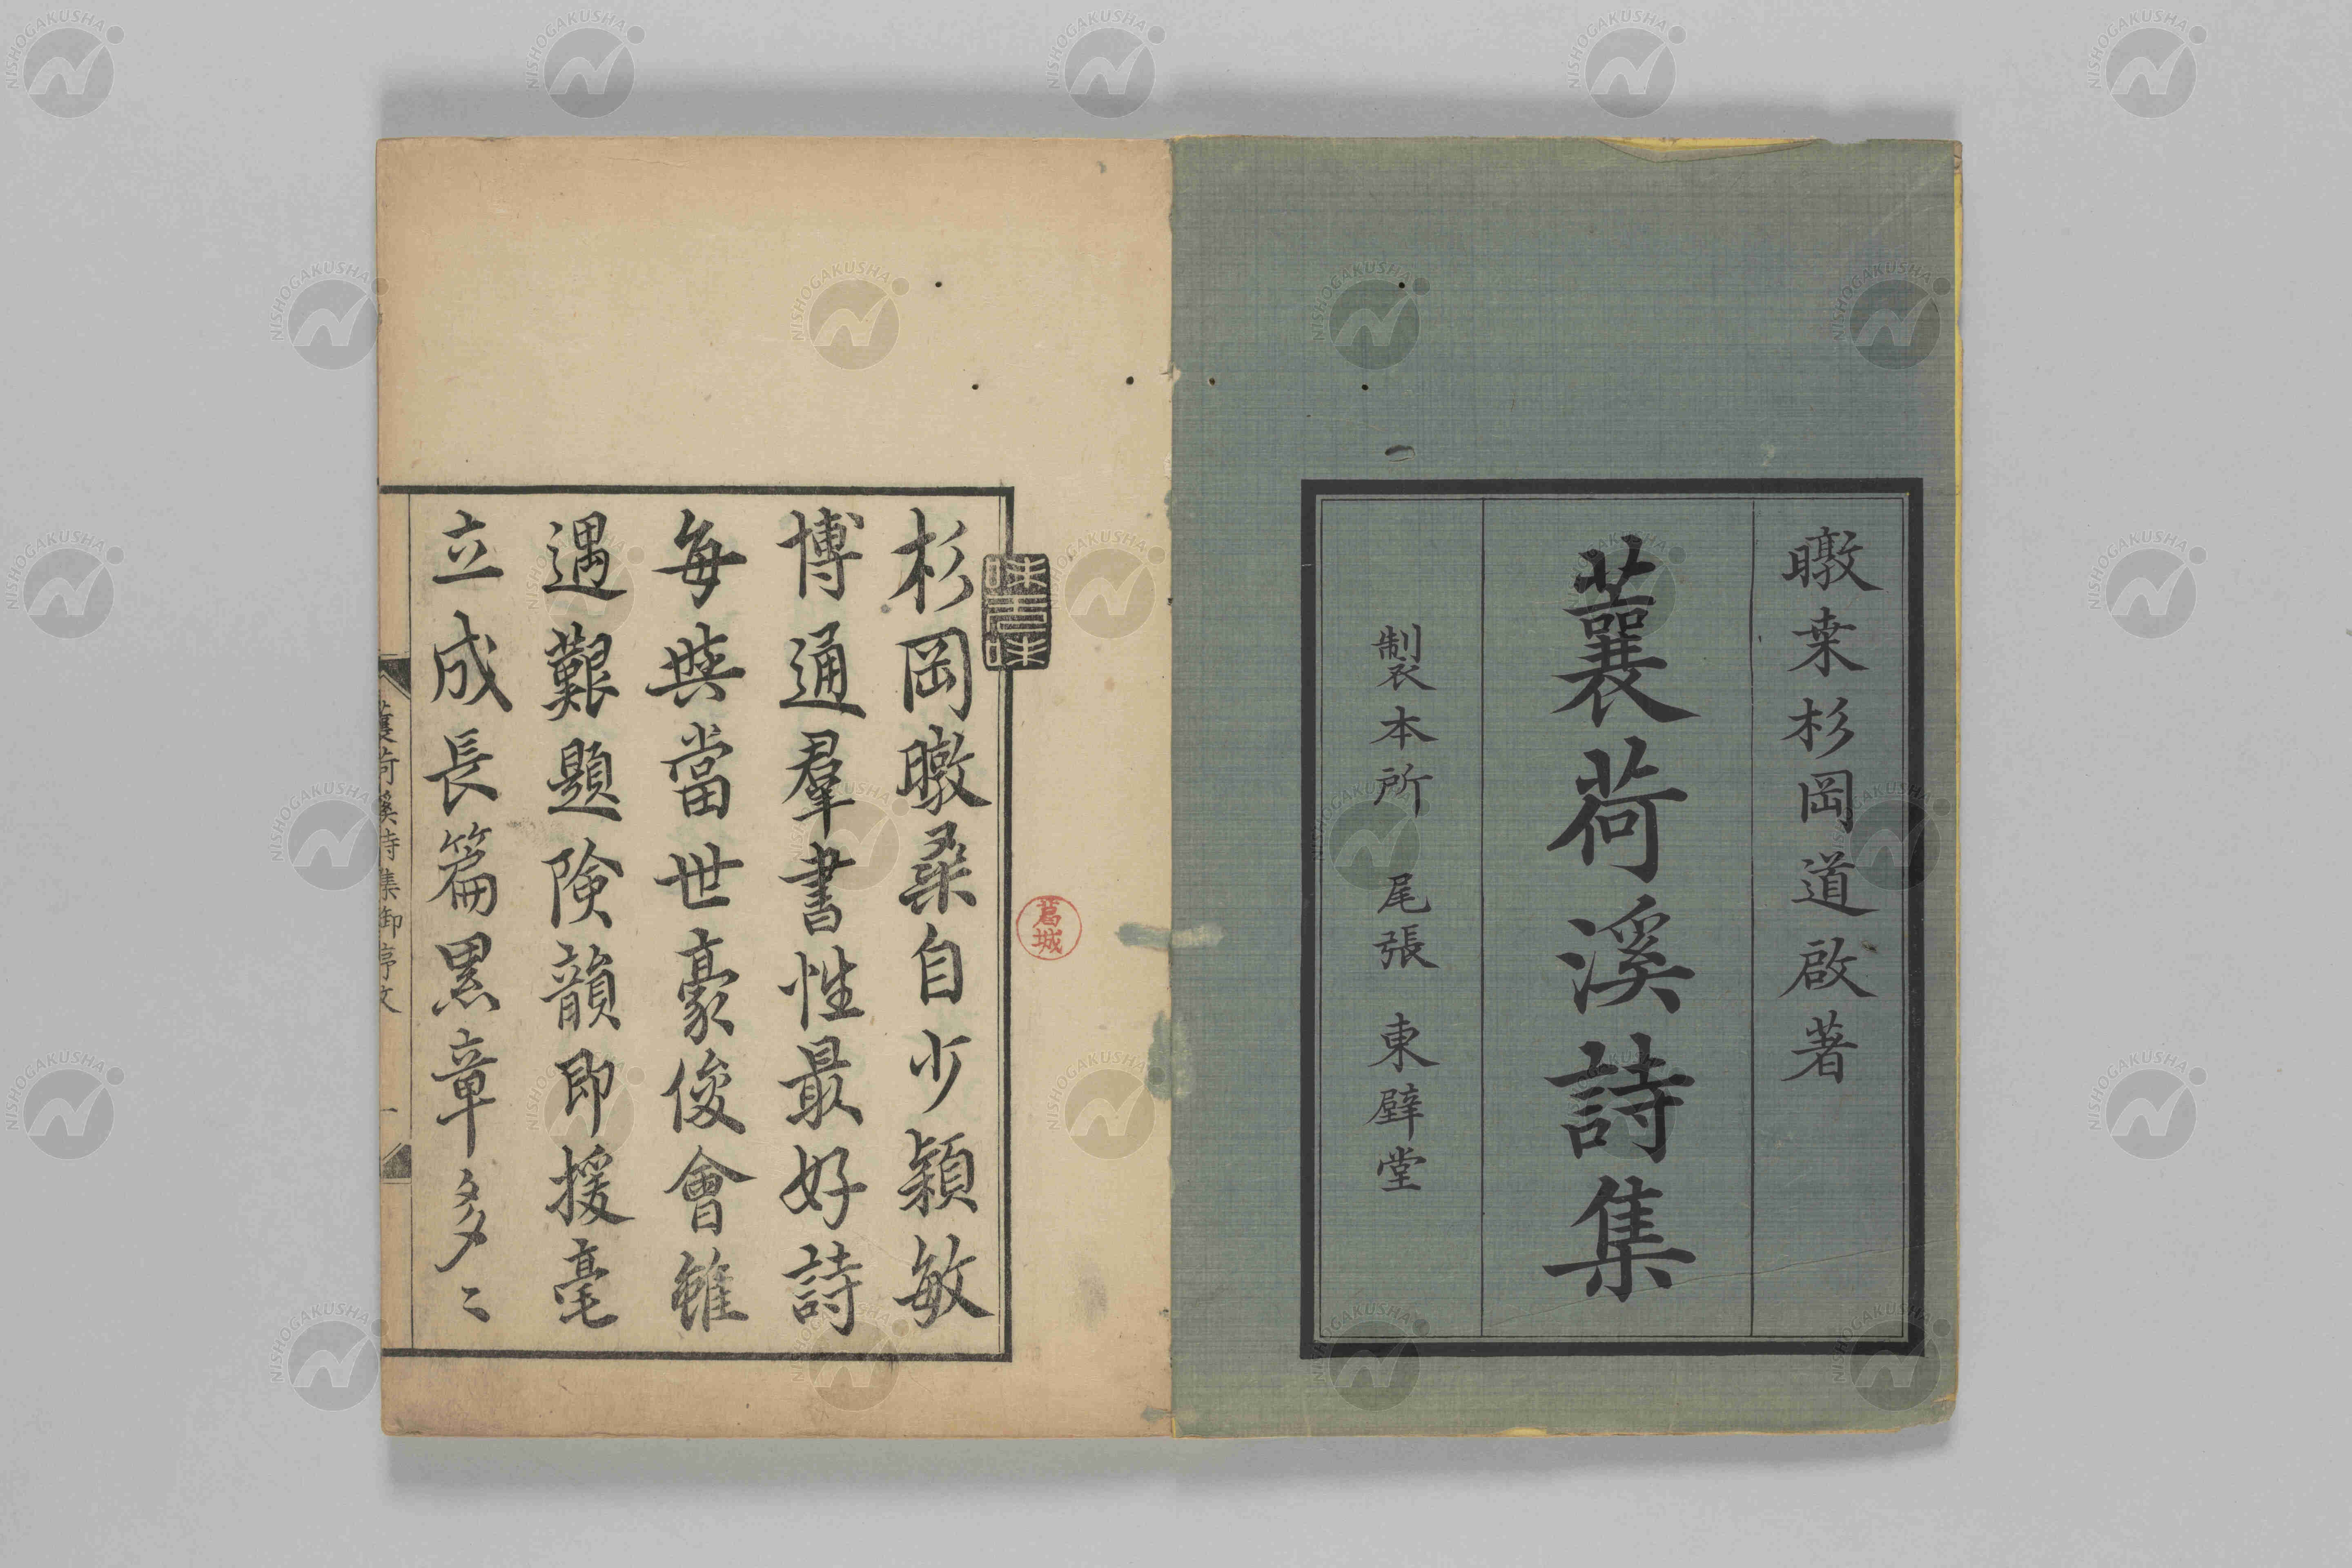 暾桒杉岡道啟著
蘘荷溪詩集
製本所 尾張 東壁堂
味言味
葛城
杉岡暾桑自少穎敏
博通羣書性最好詩
每與當世豪俊會雖
遇艱題険韻即援毫
立成長篇累章多〻
蘘荷溪詩集御序文 一
NISHOGAKUSHA